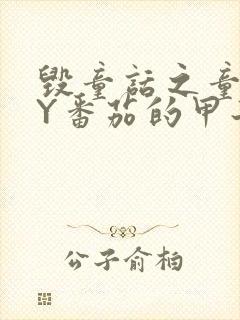 毁童话之童
Y番茄的甲
公子俞柏